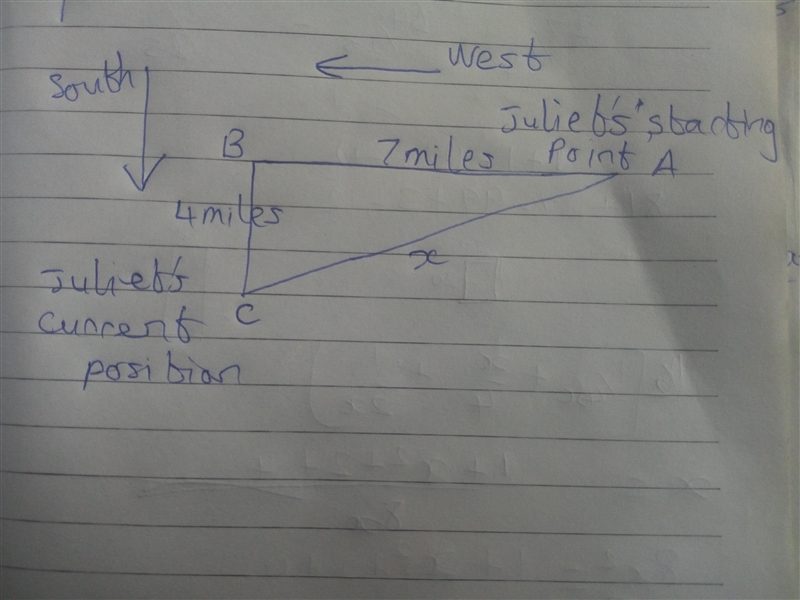 West
South
Juliet's starting
B 7miles Point A
4miles
x
Juliet's
C
Current
position